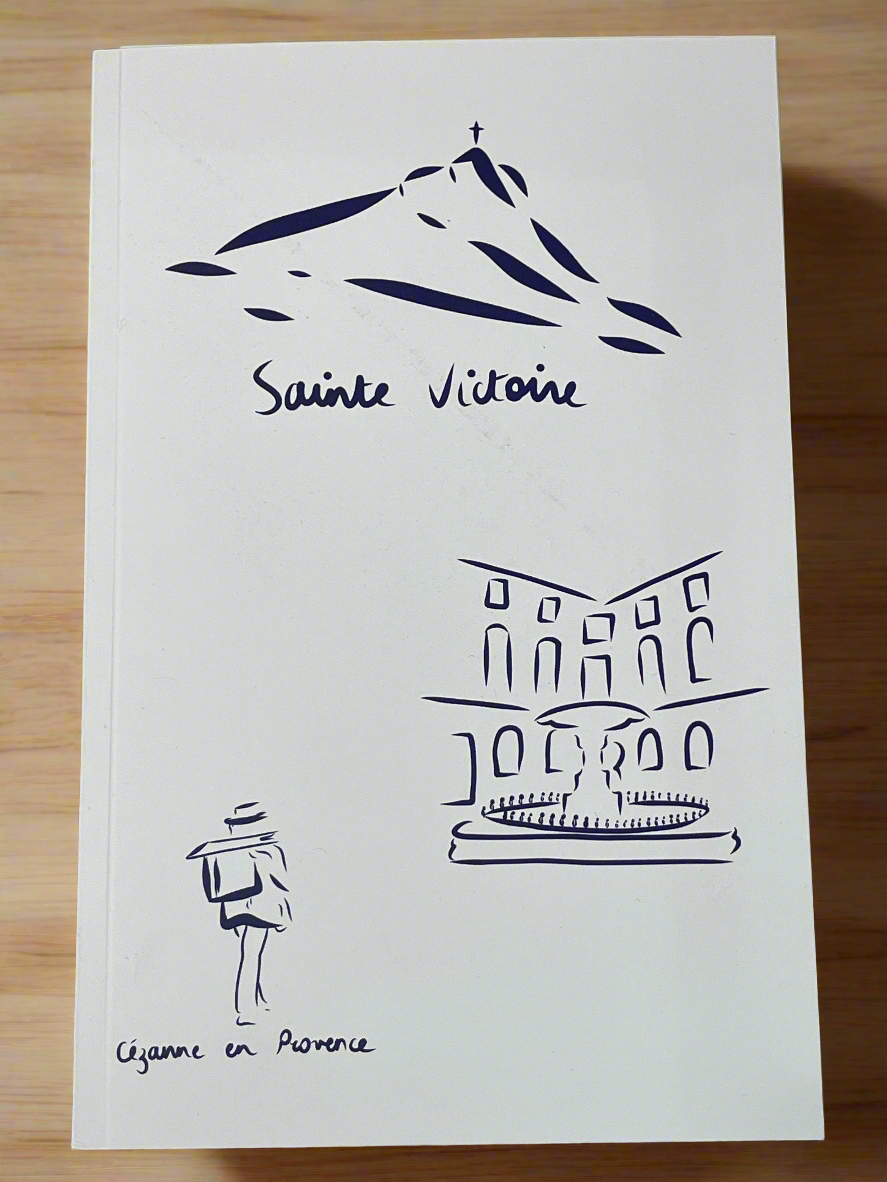 Sainte Victoire
Cézanne en Provence